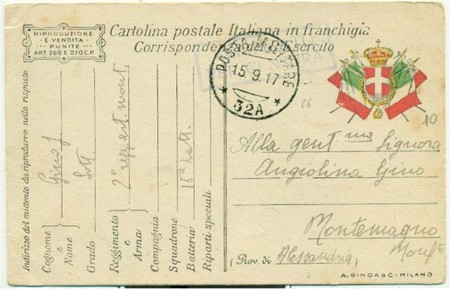 RIPRODUZIONE
E VENDITA
PUNITE
ART. 285 E 27O C.P.
Cartolina postale Italiana in franchigia
Corrispondenza del R. Esercito
POSTA MILITARE
15.9.17
32A
10
Alla gent ma Signora
Angiolina Gino
Montemagno
Monf
(Prov. di Alessandria)
A. GINOA & C. - MILANO
Indirizzo del mittente da riprodurre nella risposta
Cognome e Nome Gino
Grado Sott
Reggimento e Arma 2° regg
Compagnia
Squadrone
Batteria
Riparti speciali